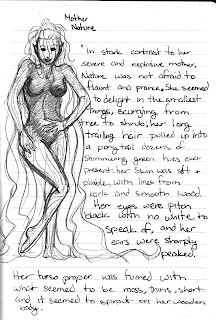 Mother
Nature
"In stark contrast to her
severe and explosive mother,
Nature was not afraid to
flaunt and prance. She seemed
to delight in the smallest
things, scurrying from
tree to shrub; her long
trailing hair pulled up into
a ponytail dozens of
shimmering green hues ever
present; her skin was soft &
pliable, with lines from
bark and smooth wood.
Her eyes were pitch
black with no white to
speak of, and her
ears were sharply
peaked.
Her torso proper was furred with
what seemed to be moss, thins, short
and it seemed to sprout on her wooden
body.